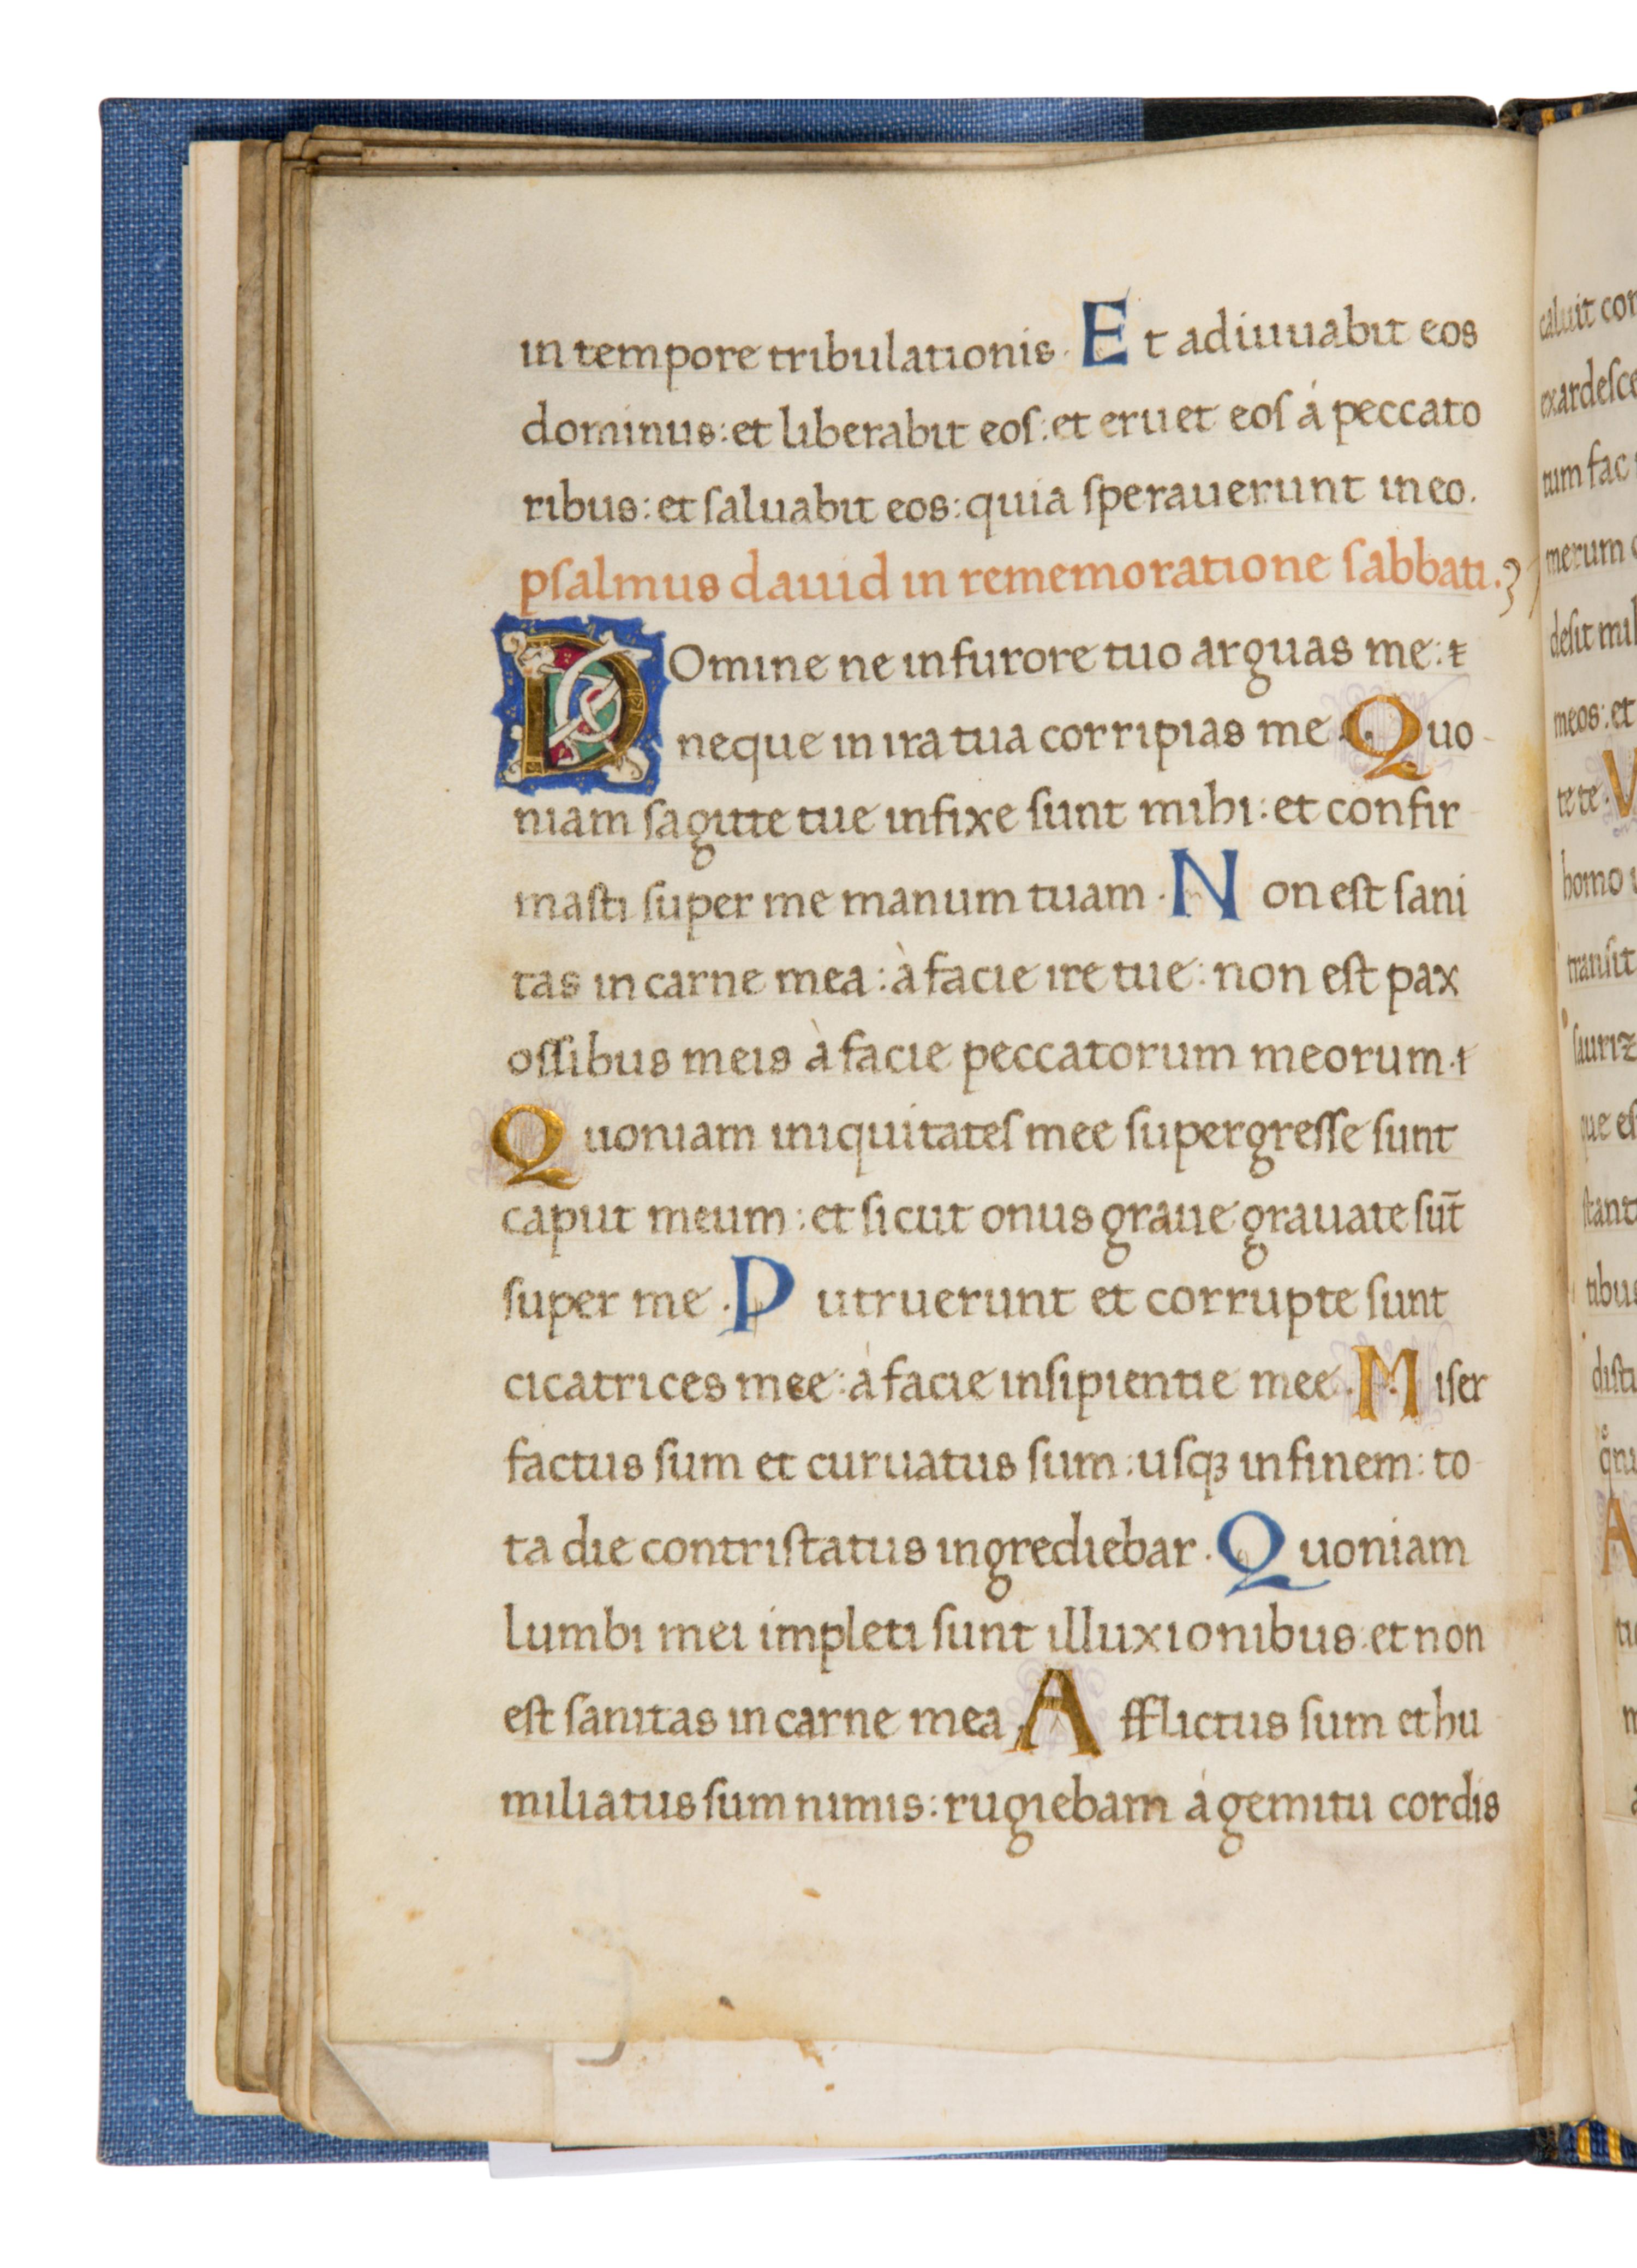 in tempore tribulationis. Et adiuuabit eos
dominus: et liberabit eoſ: et eruet eoſ á peccato
ribus: et ſaluabit eos: quia ſperauerunt in eo.
pſalmus dauid in rememoratione ſabbati. 37
DOmine ne in furore tuo arguas me: ⁊
neque in ira tua corripias me. Quo-
niam ſagitte tue infixe ſunt mihi: et confir
maſti ſuper me manum tuam. Non eſt ſani
tas in carne mea: à facie ire tue: non eſt pax
oſſibus meis à facie peccatorum meorum.
Quoniam iniquitateſ mee ſupergreſſe ſunt
caput meum: et ſicut onus graue grauate ſut̄
ſuper me. Putruerunt et corrupte ſunt
cicatrices mee: à facie inſipientie mee. Miſer
factus ſum et curuatus ſum: uſqꝫ in finem: to
ta die contriſtatus ingrediebar. Quoniam
lumbi mei impleti ſunt illuxionibus: et non
eſt ſanitas in carne mea. Afflictus ſum et hu
miliatus ſum nimis: rugiebam á gemitu cordis
caluit cor
exardeſce
tum fac
merum
deſit mih
meos: et
te te. V
homo
tranſit
ſauriz
que eſ
ſtant
tibus
diſtu
A